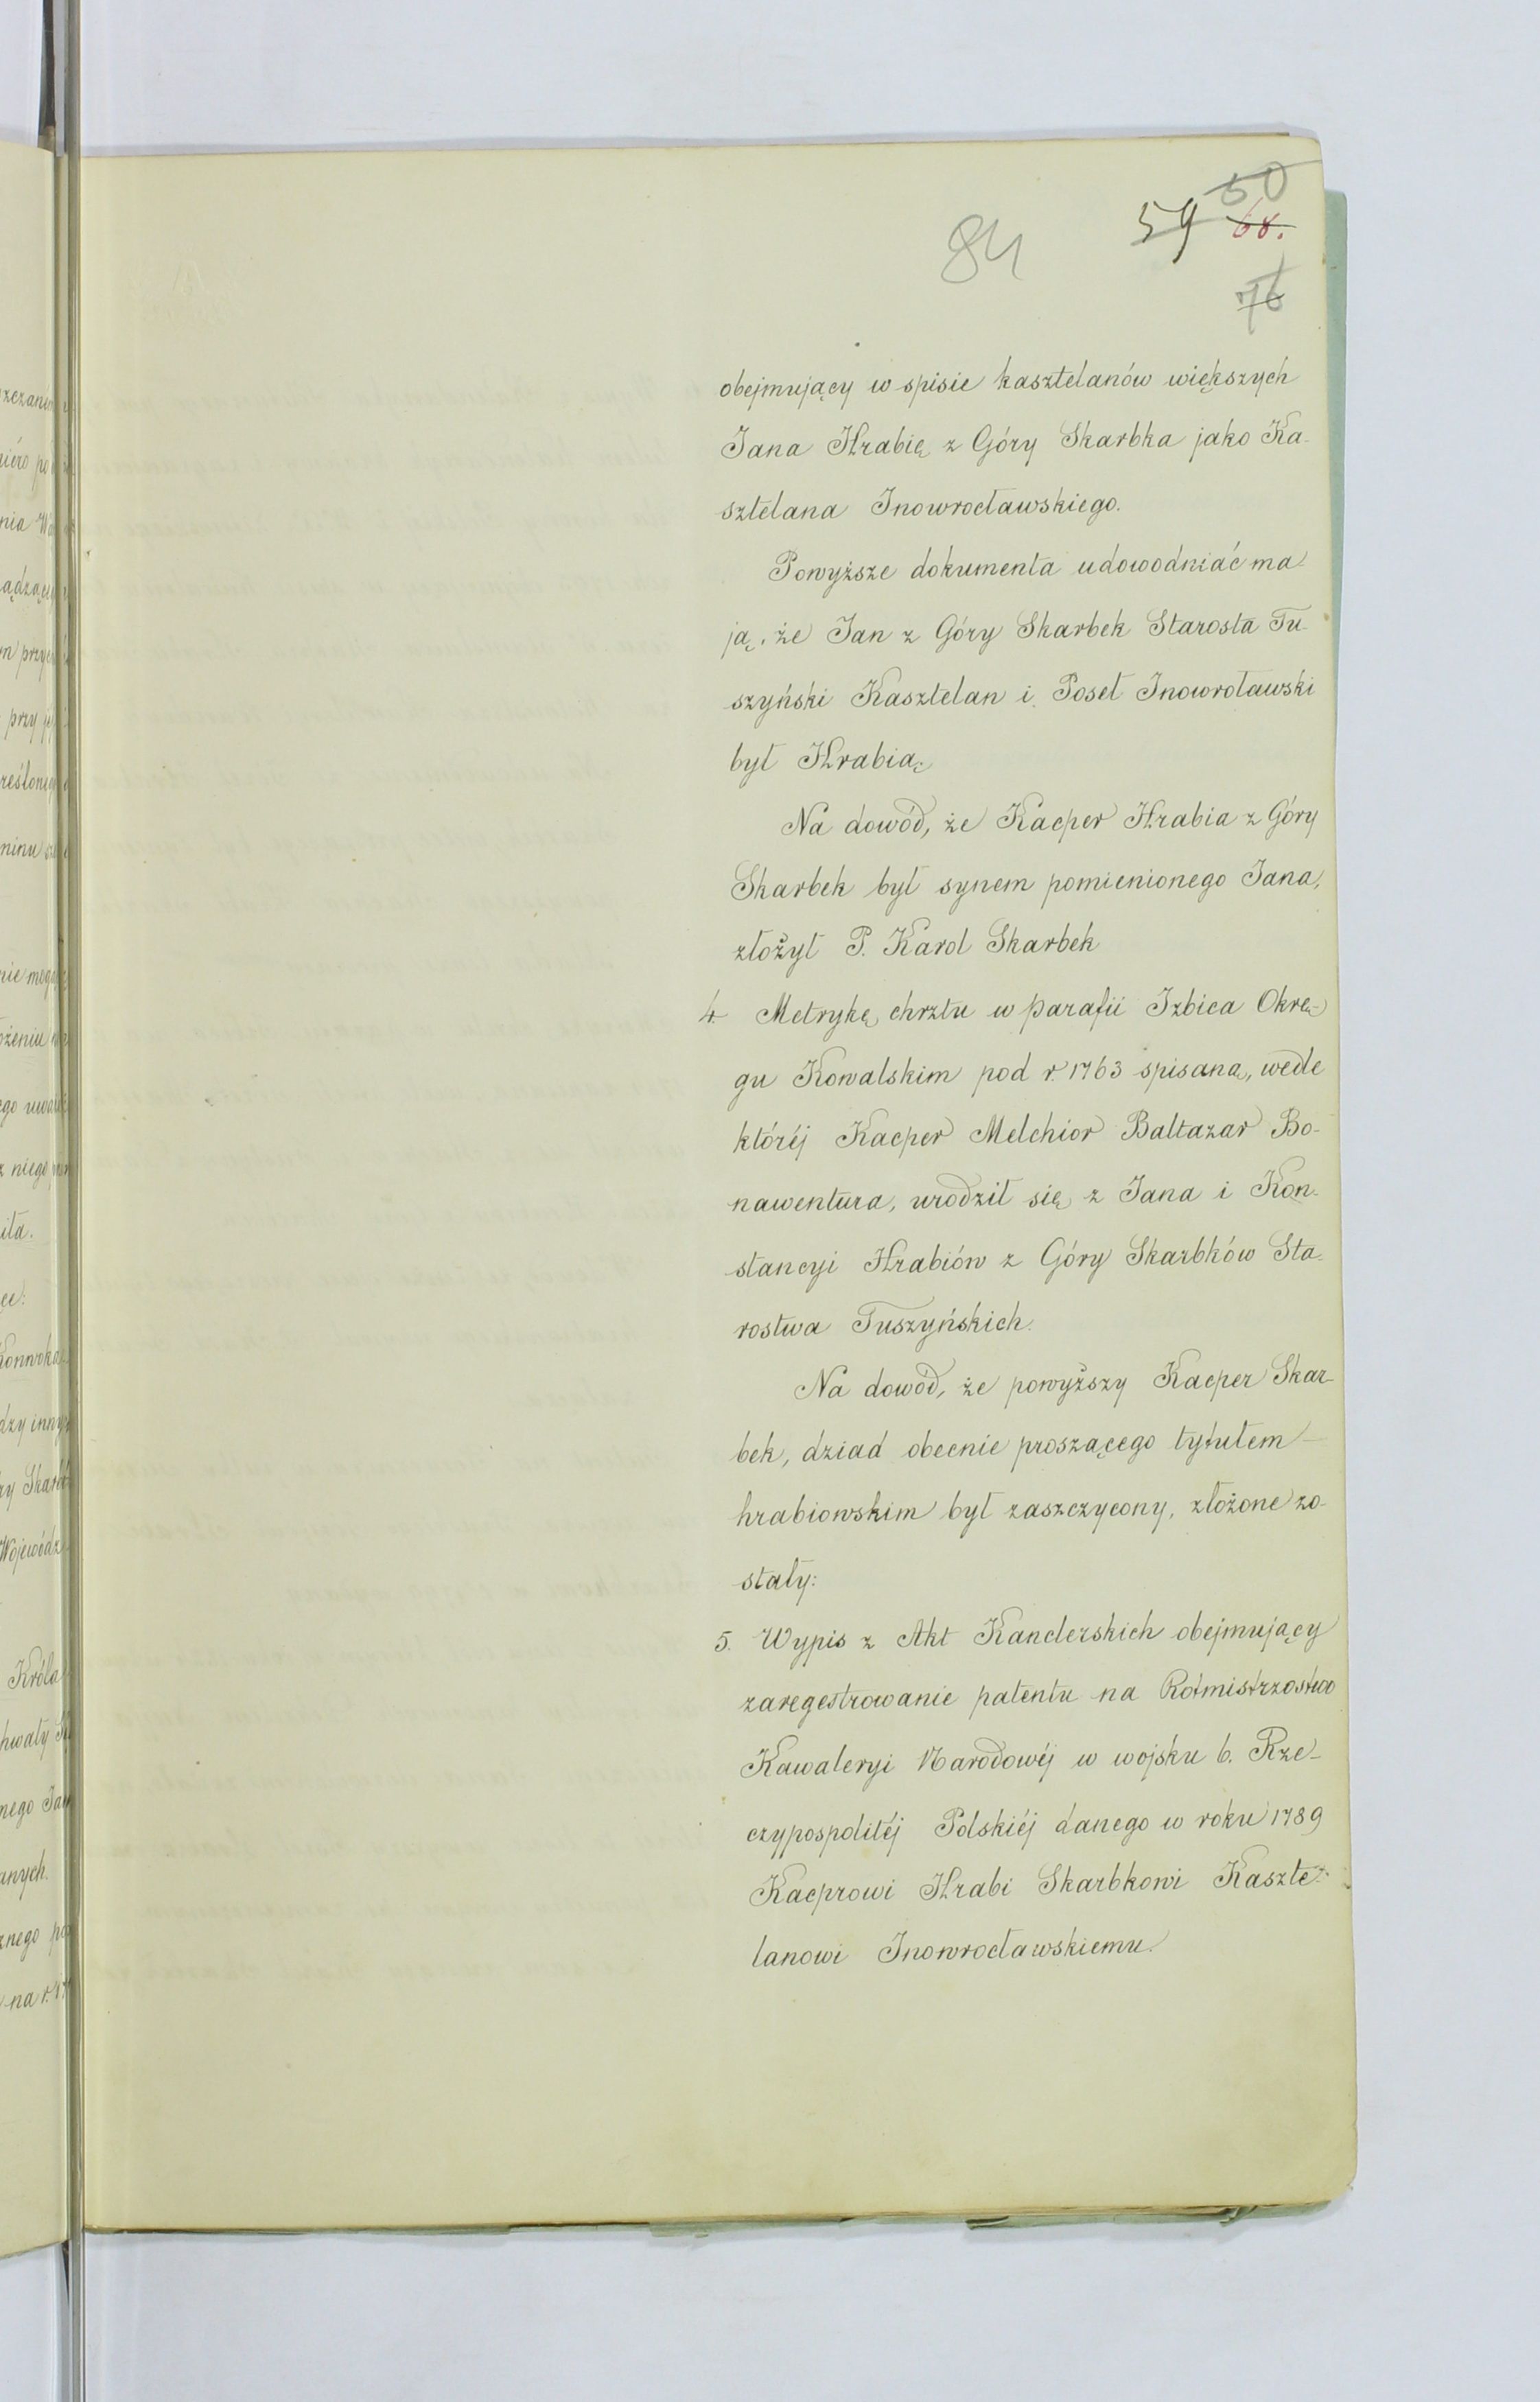 50
59 68.
84
76
obejmujący w spisie kasztelanów większych
Jana Hrabię z Góry Skarbka jako Ka-
sztelana Inowrocławskiego.
Powyższe dokumenta udowodniać ma-
ją, że Jan z Góry Skarbek Starosta Tu-
szyński Kasztelan i Poseł Inowrołławski
był Hrabią.
Na dowód, że Kacper Hrabia z Góry
Skarbek był synem pomienionego Jana,
złożył P. Karol Skarbek
4. Metrykę chrztu w parafii Izbica Okrę-
gu Kowalskim pod r. 1763 spisaną, wedle
któréj Kacper Melchior Baltazar Bo-
nawentura, urodził się z Jana i Kon-
stancyi Hrabiów z Góry Skarbków Sta-
rostwa Tuszyńskich.
Na dowód, że powyższy Kacper Skar-
bek, dziad obecnie proszącego tytułem
hrabiowskim był zaszczycony, złożone zo-
stały:
5. Wypis z Akt Kanclerskich obejmujący
zaregestrowanie patentu na Rotmistrzostwo
Kawaleryi Narodowéj w wojsku b. Rze-
czypospolitéj Polskiéj danego w roku 1789
Kacprowi Hrabi Skarbkowi Kaszte-
lanowi Inowrocławskiemu.